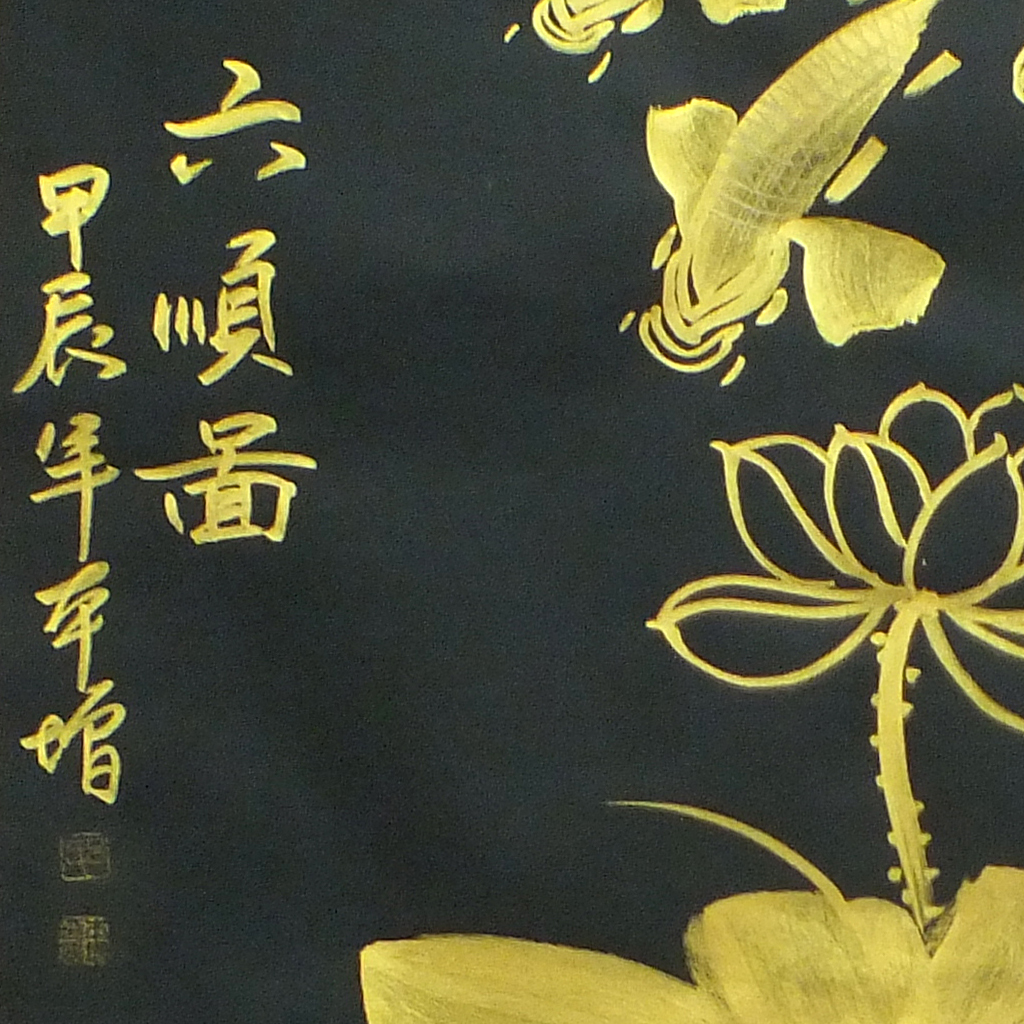 六順圖
甲辰年平增